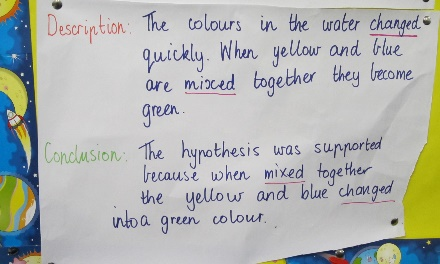 Description: The colours in the water changed
quickly. When yellow and blue
are mixed together they become
green.
Conclusion: The hypothesis was supported
because when mixed together
the yellow and blue changed
into a green colour.